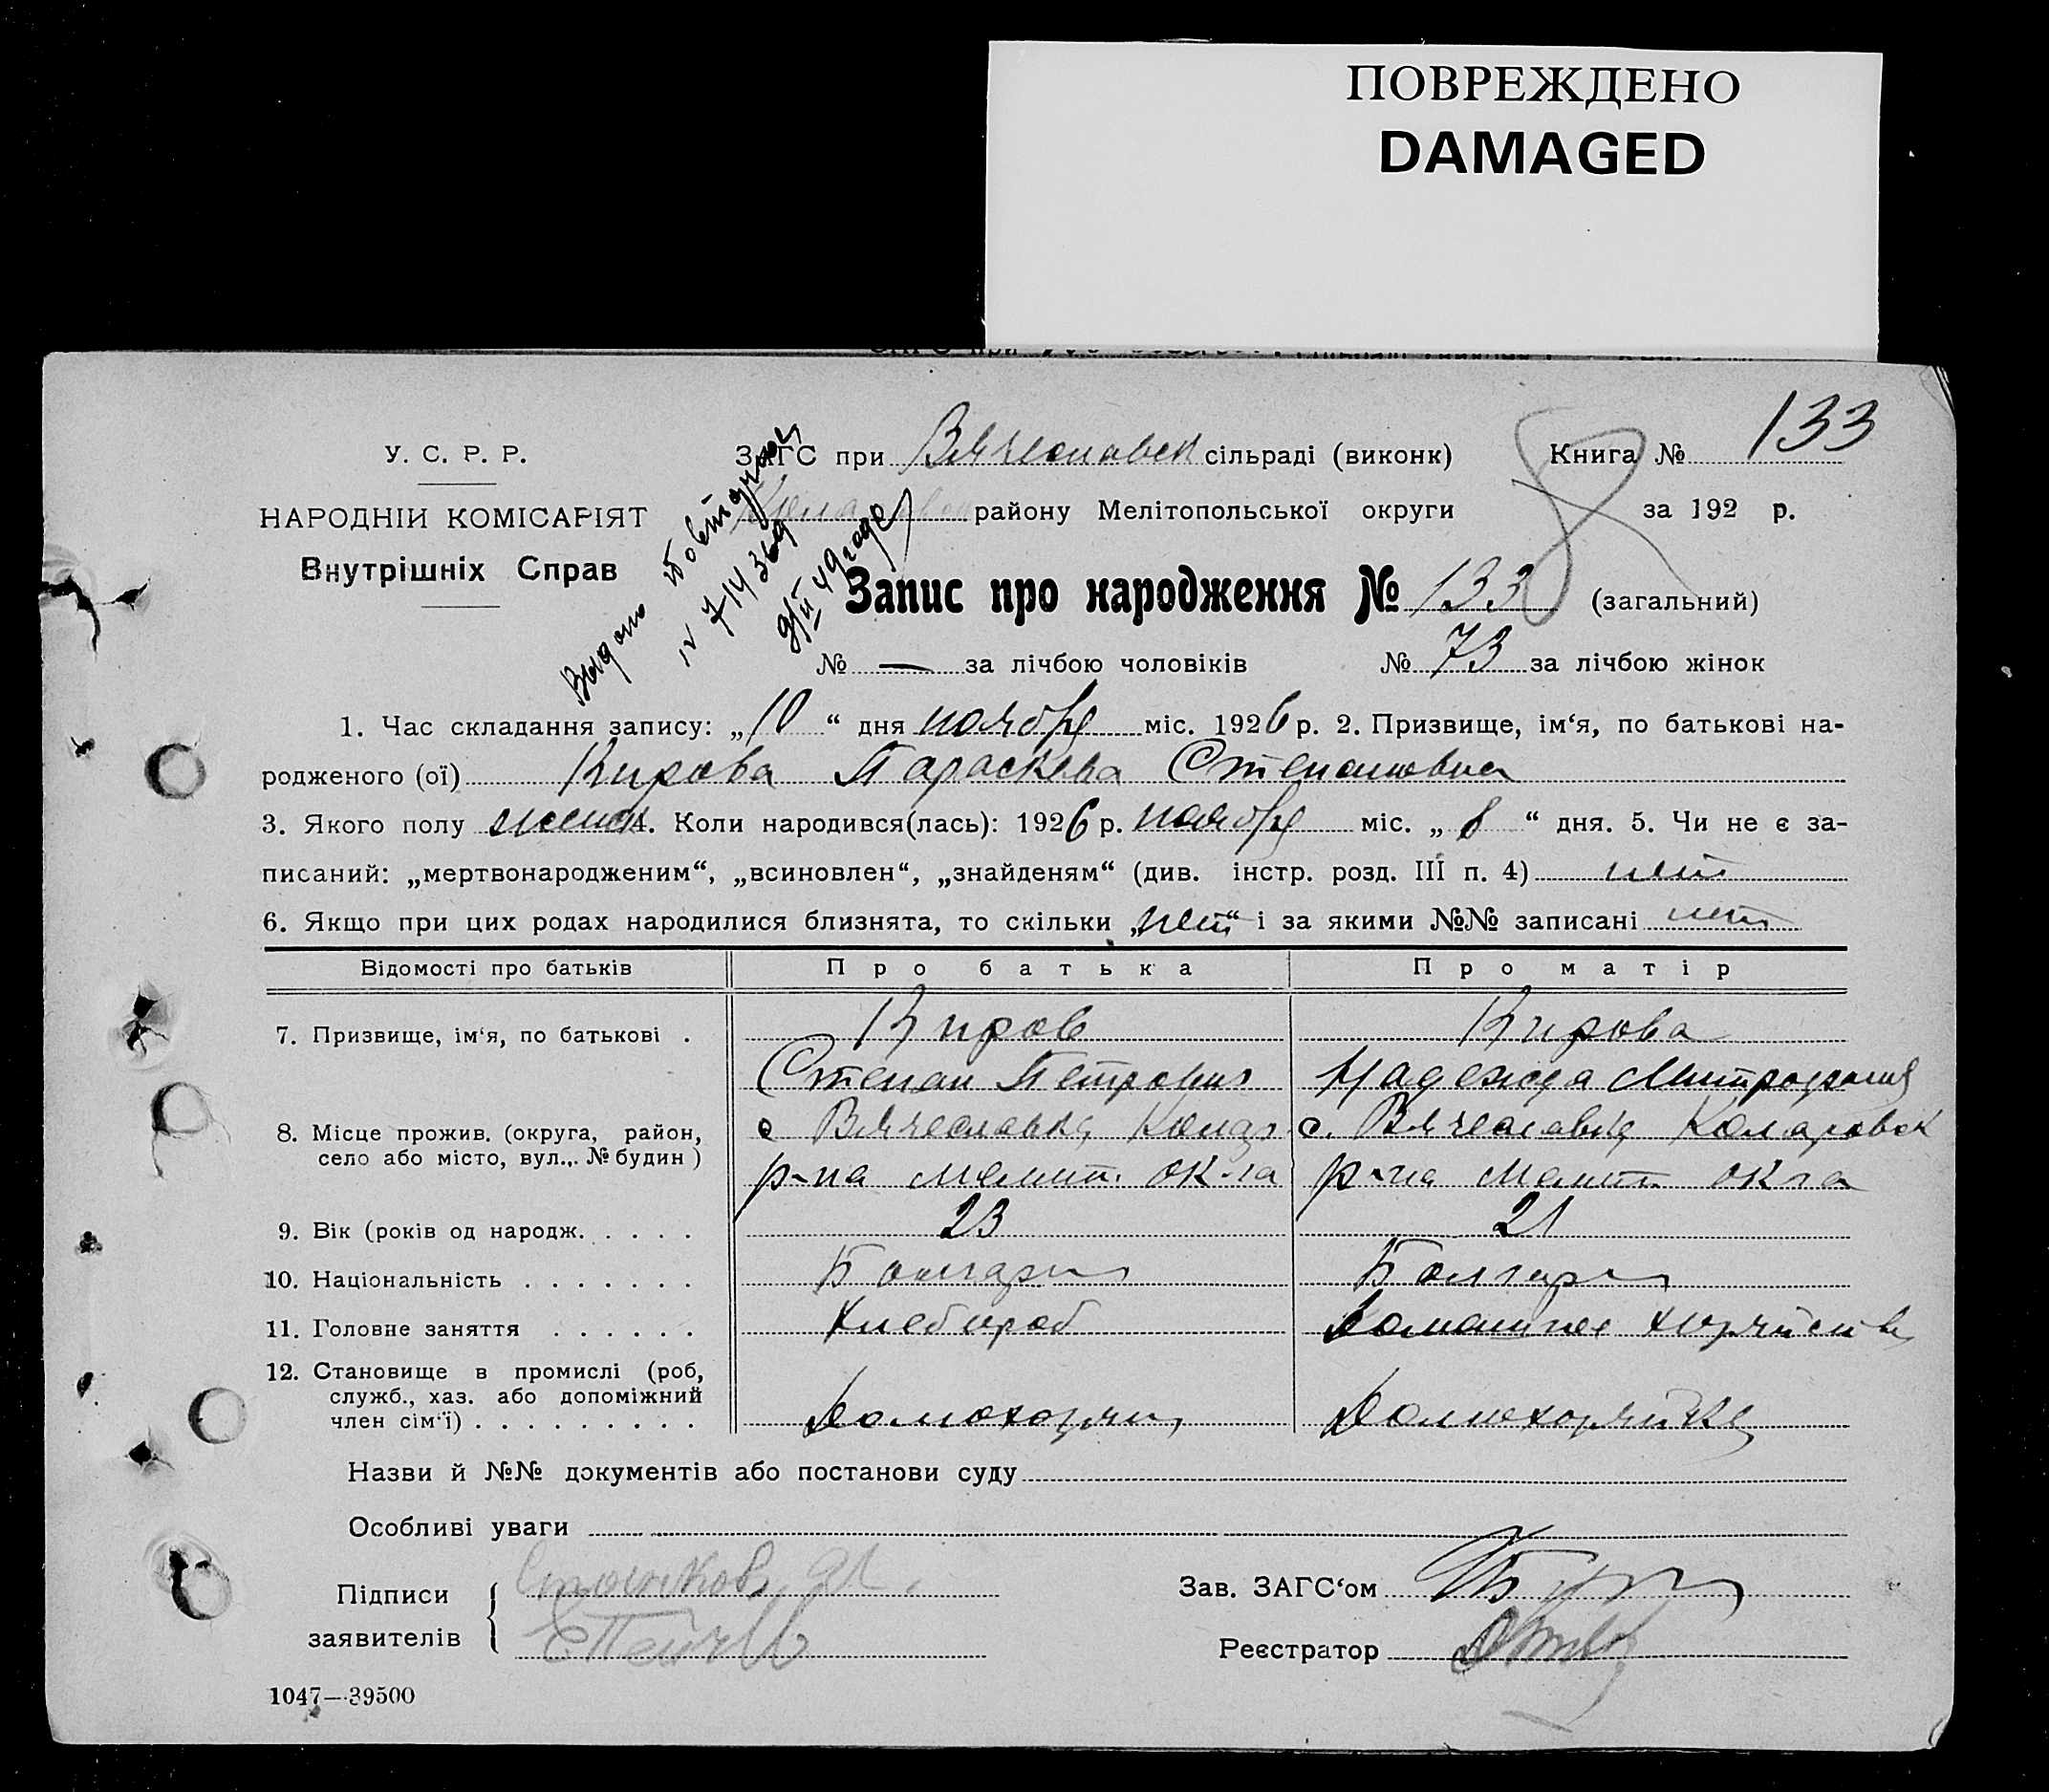 ПОВРЕЖДЕНО
DAMAGED
У. С. Р. Р.
НАРОДНІЙ КОМІСАРІЯТ
Внутрішніх Справ
ЗАГС при Вячеславск сільраді (виконк) Книга № 133
району Мелітопольської округи за 192 р.
Выдано повторное
№ 714369
9/II 49 года
Запис про народження № 133 (загальний)
№ — за лічбою чоловіків № 73 за лічбою жінок
1. Час складання запису: „10“ дня ноября міс. 1926 р. 2. Призвище, ім‘я, по батькові на-
родженого (ої) Кирова Параскева Степановна
3. Якого полу женск 4. Коли народився(лась): 1926 р. ноября міс. „8“ дня. 5. Чи не є за-
писаний: „мертвонародженим“, „всиновлен“, „знайденям“ (див. інстр. розд. III п. 4) нет
6. Якщо при цих родах народилися близнята, то скільки „нет“ і за якими №№ записані нет
Відомості про батьків Про батька Про матір
7. Призвище, ім‘я, по батькові . Киров Кирова
Степан Петрович Надежда Митрофан
8. Місце прожив. (округа, район, с Вячеславка Колар с. Вячеславка Коларовск
село або місто, вул., № будин ) р-на Мелит. ок-га р-на Мелит. окга
9. Вік (років од народж. . . . . 23 21
10. Національність . . . . . . . Болгарин Болгарин
11. Головне заняття . . . . . . Хлебороб Домашнее хозяйство
12. Становище в промислі (роб,
служб., хаз. або допоміжний
член сім‘ї) . . . . . . . . . Домохозяин Домохозяйка
Назви й №№ документів або постанови суду
Особливі уваги
Підписи Зав. ЗАГС‘ом
заявителів Реєстратор
1047—39500